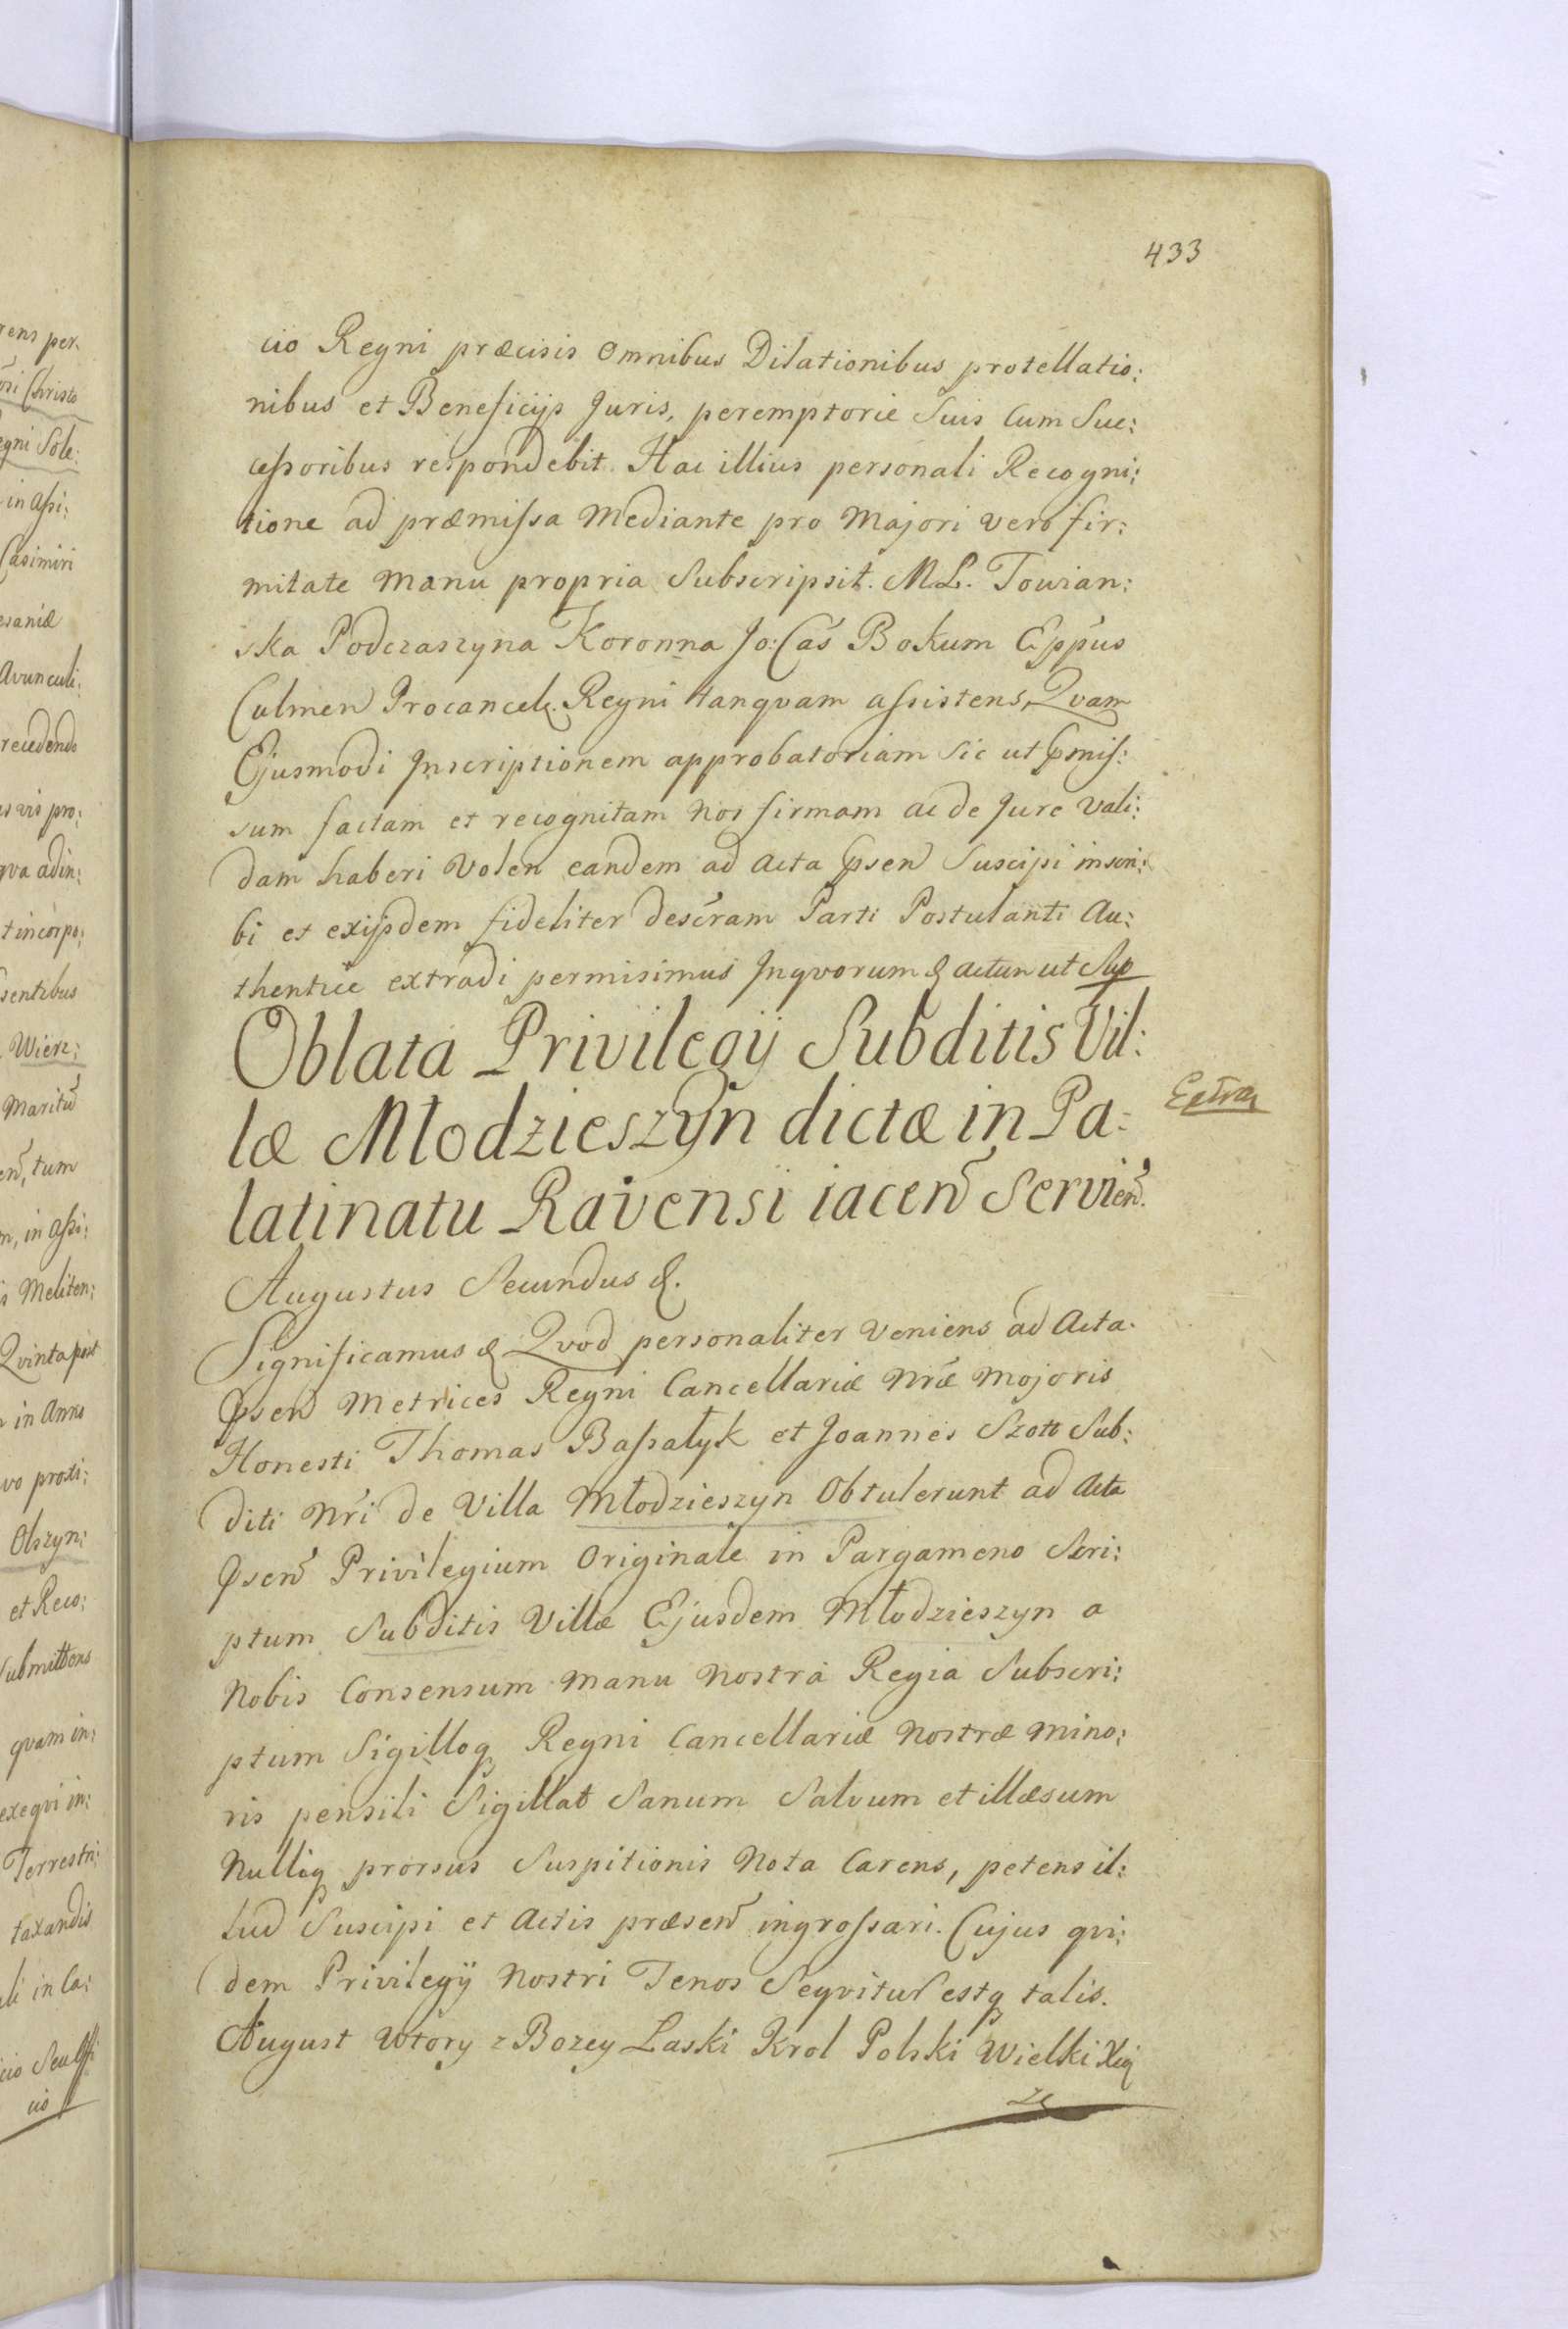 433
cio Regni præcisis Omnibus Dilationibus protellatio:
nibus et Beneficijs Juris, peremptorie Suis Cum Suc:
cessoribus respondebit. Hac illius personali Recogni:
tione ad præmissa Mediante pro Majori vero fir:
mitate Manu propria Subscripsit. M L. Towian:
ska Podczaszyna Koronna Jo: Cas Bokum Eppus
Culmen Procancel. Regni tanqvam assistens, Qvam
Ejusmodi Inscriptionem approbatoriam Sic ut pmis:
sum factam et recognitam Nos firmam ac de Jure Vali:
dam haberi Volen eandem ad Acta psen Suscipi inscri:
bi et exijsdem fideliter descram Parti Postulanti Au:
thentice extradi permisimus Inqvorum & actum ut Sup
Oblata Privilegij Subditis Vil:
læ Młodzieszyn dictæ in Pa:
latinatu Ravensi iacen Servien.
Extra
Augustus Secundus &.
Significamus & Qvod personaliter Veniens ad Acta
psen Metrices Regni Cancellariæ Nræ Majoris
Honesti Thomas Bassałyk et Joannes Szott Sub:
diti Nri de Villa Młodzieszyn Obtulerunt ad Acta
psen Privilegium Originale in Pargameno Scri:
ptum Subditis Villæ Ejusdem Młodzieszyn a
Nobis Consensum Manu Nostra Regia Subscri:
ptum Sigilloq Regni Cancellariæ Nostræ Mino:
ris pensili Sigillat Sanum Salvum et illæsum
Nulliq prorsus Suspitionis Nota Carens, petens il:
lud Suscipi et Actis præsen ingrossari. Cujus qvi:
dem Privilegij Nostri Tenor Seqvitur estq talis.
August Wtory z Bozey Laski Krol Polski Wielki Xią
ze